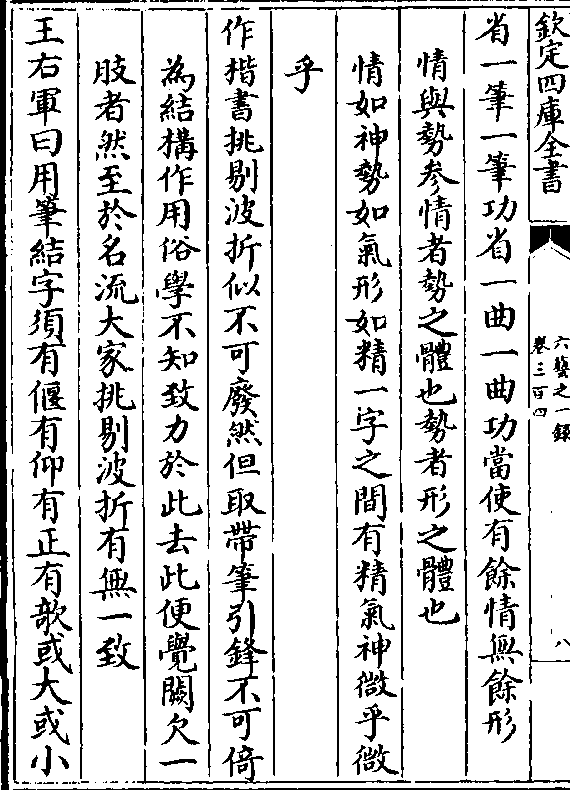 欽定四庫全書
六藝之一錄
卷三百四
八
省一筆一筆功省一曲一曲功當使有餘情無餘形
情與勢參情者勢之體也勢者形之體也
情如神勢如氣形如精一字之間有精氣神微乎微
乎
作楷書挑剔波折似不可廢然但取帶筆引鋒不可倚
為結構作用俗學不知致力於此去此便覺闕欠一
肢者然至於名流大家挑剔波折有無一致
王右軍曰用筆結字須有偃有仰有正有欹或大或小